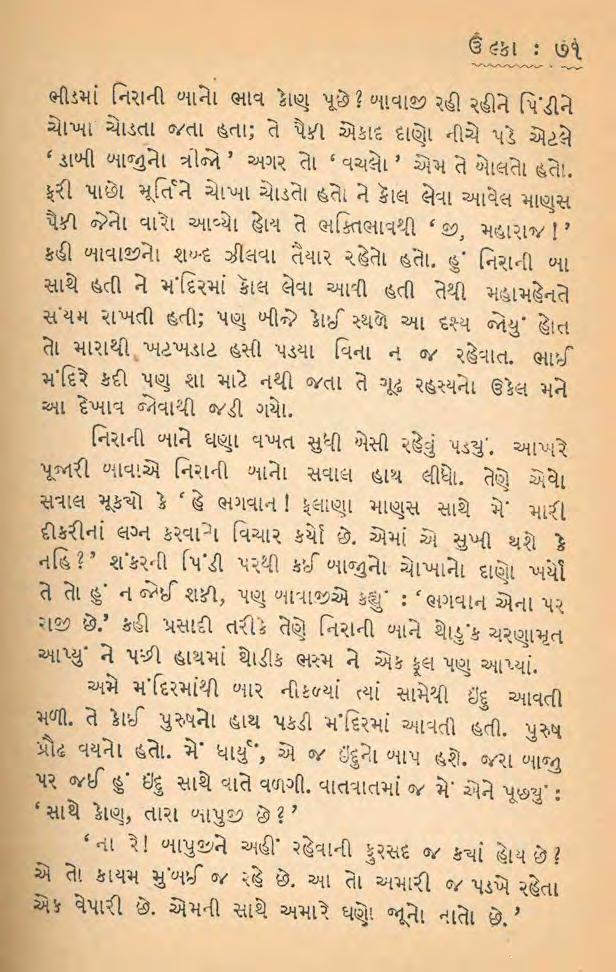 ઉલ્કા : ૭૧
ભીડમાં નિરાની બાનો ભાવ કોણ પૂછે? બાવાજી રહી રહીને પિંડીને
ચોખા ચોડતા જતા હતા; તે પૈકી એકાદ દાણો નીચે પડે એટલે
‘ડાબી બાજુનો ત્રીજો’ અગર તો ‘વચલો’ એમ તે બોલતો હતો.
ફરી પાછો મૂર્તિને ચોખા ચોડતો હતો ને કોલ લેવા આવેલ માણસ
પૈકી જેનો વારો આવ્યો હોય તે ભક્તિભાવથી ‘જી, મહારાજ!’
કહી બાવાજીનો શબ્દ ઝીલવા તૈયાર રહેતો હતો. હું નિરાની બા
સાથે હતી ને મંદિરમાં કોલ લેવા આવી હતી તેથી મહામહેનતે
સંયમ રાખતી હતી; પણ બીજે કોઈ સ્થળે આ દૃશ્ય જોયું હોત
તો મારાથી ખટખડાટ હસી પડયા વિના ન જ રહેવાત. ભાઈ
મંદિરે કદી પણ શા માટે નથી જતા તે ગૂઢ રહસ્યનો ઉકેલ મને
આ દેખાવ જોવાથી જડી ગયો.
નિરાની બાને ઘણા વખત સુધી બેસી રહેવું પડયું. આખરે
પૂજારી બાવાએ નિરાની બાનો સવાલ હાથ લીધો. તેણે એવો
સવાલ મૂક્યો કે ‘હે ભગવાન! ફલાણા માણસ સાથે મેં મારી
દીકરીનાં લગ્ન કરવાનો વિચાર કર્યો છે. એમાં એ સુખી થશે કે
નહિ?’ શંકરની પિંડી પરથી કઈ બાજુનો ચોખાનો દાણો ખર્યો
તે તો હું ન જોઈ શકી, પણ બાવાજીએ કહ્યું : ‘ભગવાન એના પર
રાજી છે.’ કહી પ્રસાદી તરીકે તેણે નિરાની બાને થોડુંક ચરણામૃત
આપ્યું ને પછી હાથમાં થોડીક ભસ્મ ને એક ફૂલ પણ આપ્યાં.
અમે મંદિરમાંથી બાર નીકળ્યાં ત્યાં સામેથી ઇંદુ આવતી
મળી. તે કોઈ પુરુષનો હાથ પકડી મંદિરમાં આવતી હતી. પુરુષ
પ્રૌઢ વયનો હતો. મેં ધાર્યું, એ જ ઇંદુનો બાપ હશે. જરા બાજુ
પર જઈ હું ઇંદુ સાથે વાતે વળગી. વાતવાતમાં જ મેં એને પૂછ્યું :
‘સાથે કોણ, તારા બાપુજી છે?’
‘ના રે! બાપુજીને અહીં રહેવાની ફુરસદ જ ક્યાં હોય છે?
એ તો કાયમ મુંબઈ જ રહે છે. આ તો અમારી જ પડખે રહેતા
એક વેપારી છે. એમની સાથે અમારે ઘણો જૂનો નાતો છે.’